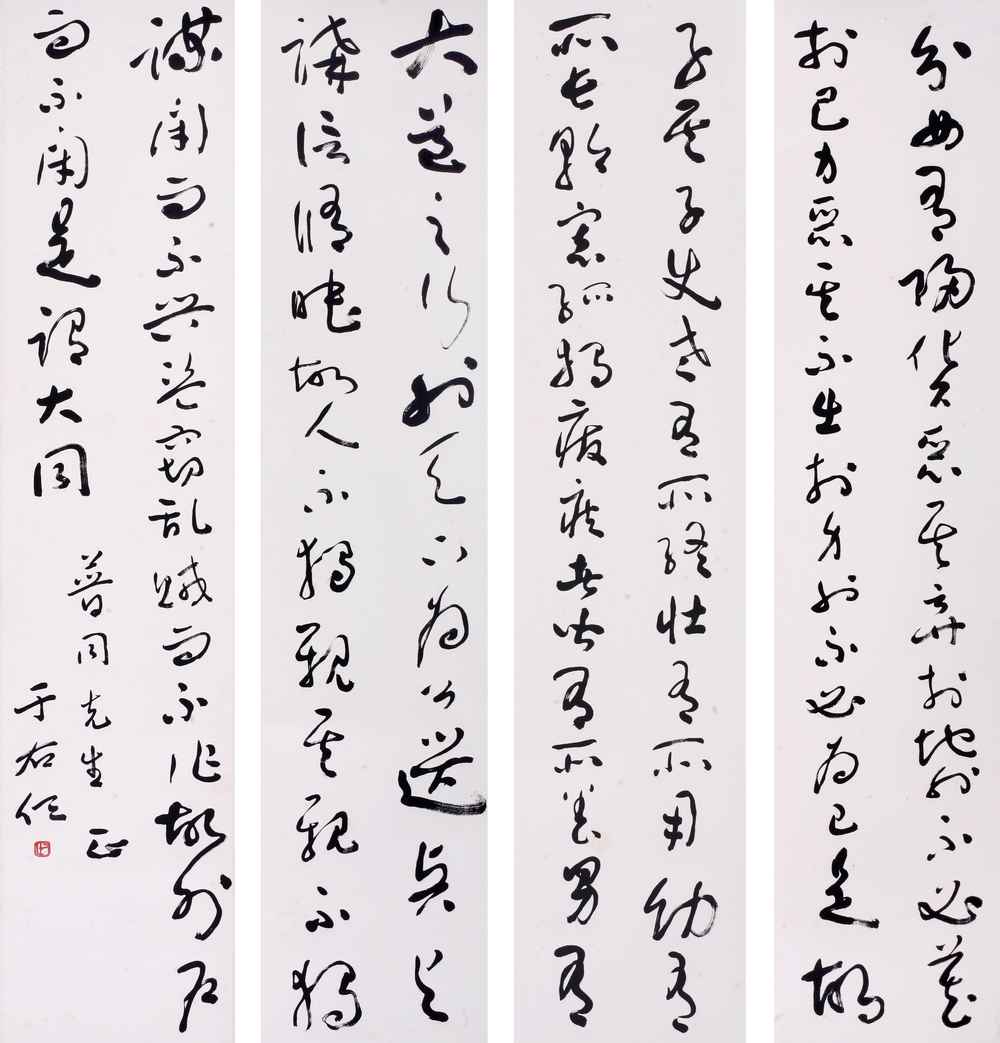 大道之行也天下為公選賢與
講信修睦故人不獨親其親不獨
子其子使老有所終壯有所用幼有
所長矜寡孤獨廢疾者皆有所養男有
分女有歸貨惡其棄於地也不必藏
於己力惡其不出於身也不必為己是故
謀閉而不興盜竊乱賊而不作故外戶
而不閉是謂大同
普同先生正
于右任